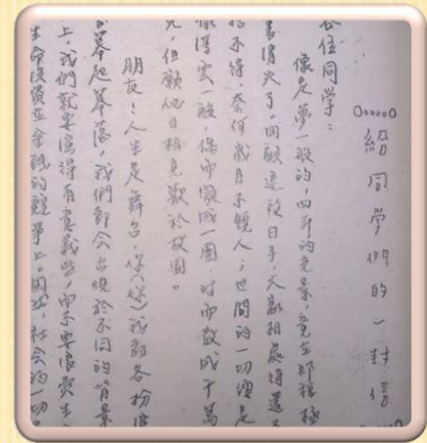 給同學們的一封信
各位同学：
像是夢一般的，四年的光景，竟在那種
消失了，回顧這段日子，大家相處得還
不錯，奈何歲月不饒人；世間的一切總是
浮雲一般，偶而凝成一團，时而散成千萬
，但願他日相見歡於故園。
朋友！人生是舞台，你（妳）我都各扮演
幕起幕落，我們都会出現於不同的背景
上，我們就要演得有意義些，而不要浪費生
生命浪費在金錢的競爭上。因此，社会的一切